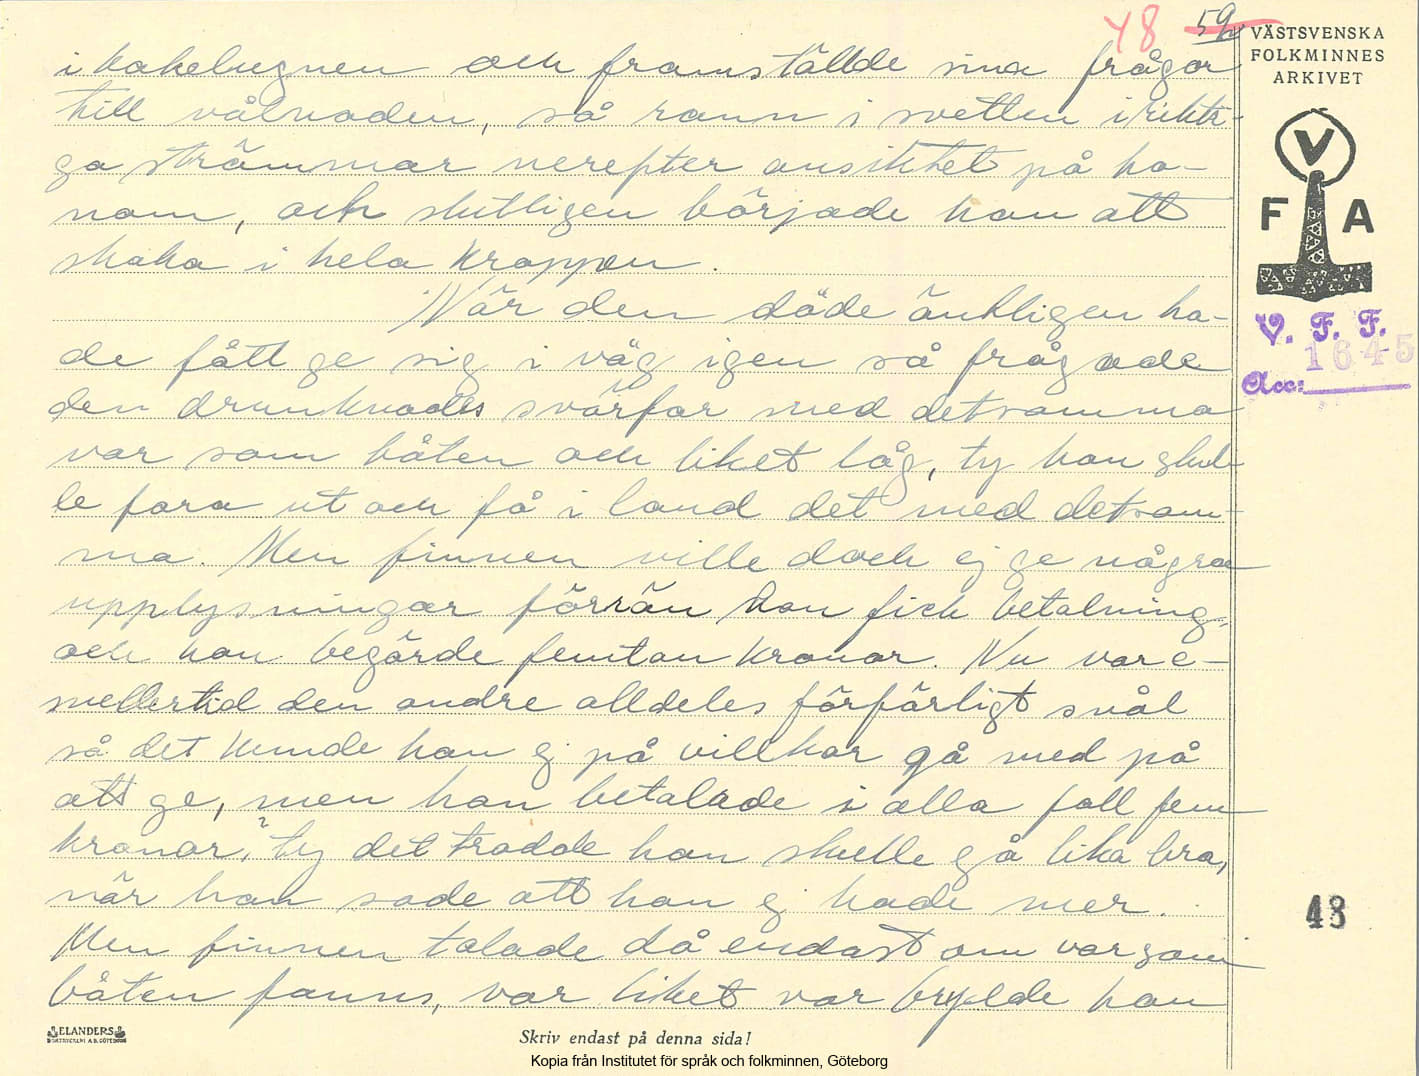 48 59
VÄSTSVENSKA
FOLKMINNES
ARKIVET
V
F A
V. F. F.
1645
Acc:
i kakelugnen och framställde sina frågor
till vålnaden, så rann i svetten i rikti-
ga strömmar nerepter ansiktet på ho-
nom, och slutligen började han att
skaka i hela kroppen.
När den döde äntligen ha-
de fått ge sig i väg igen så frågade
den drunknades svärfar med detsamma
var som båten och liket låg, ty han skul-
le fara ut och få i land det med detsam-
ma. Men finnen ville dock ej ge några
upplysningar förrän han fick betalning,
och han begärde femton kronor. Nu var e-
mellertid den andre alldeles förfärligt snål
så det kunde han ej på villkor gå med på
att ge, men han betalade i alla fall fem
kronor, ty det trodde han skulle gå lika bra,
när han sade att han ej hade mer.
Men finnen talade då endast om var som
båten fanns, var liket var brydde han
48
ELANDERS
BOKTRYCKERI A.B. GÖTEBORG
Skriv endast på denna sida!
Kopia från Institutet för språk och folkminnen, Göteborg